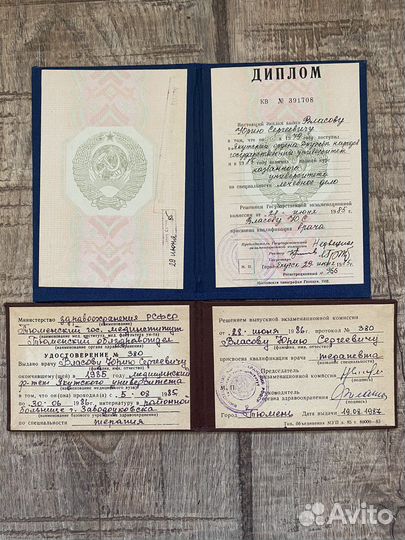 29 июня 85
ДИПЛОМ
КВ № 391708
Настоящий диплом выдан Власову
Юрию Сергеевичу
в том, что он в 1979 году поступил
в Якутский ордена Дружбы народов
государственный университет
и в 1985 году окончил полный курс
названного
университета
по специальности лечебное дело
Решением Государственной экзаменационной
комиссии от 28 июня 1985 г.
Власову Ю.С.
присвоена квалификация врача
Председатель Государственной
экзаменационной
М. П.
Город Якутск 29 июня 1985 г.
Регистрационный № 966
Московская типография Гознака. 1981.
Министерство здравоохранения РСФСР
(наименование)
Тюменский гос. мединститут
Тюменский облздравотдел
(наименование органа здравоохранения)
УДОСТОВЕРЕНИЕ № 380
Выдано врачу Власову Юрию Сергеевичу
(фамилия, имя, отчество)
окончившему(ей) в 1985 году медицинский
ф-тет Якутского университета
в том, что он(а) проходил(а) с 5-08 1985
по 30-06 1986 г. интернатуру в районной
больнице г. Заводоуковска
по специальности терапия
Решением выпускной экзаменационной комиссии
от 28 июня 1986 г. протокол № 380
Власову Юрию Сергеевичу
(фамилия, имя, отчество)
присвоена квалификация врача терапевта
Председатель
экзаменационной комиссии
(подпись)
М. П.
Руководитель
органа здравоохранения
(подпись)
Город Тюмень Дата выдачи 19.08.1986
Avito